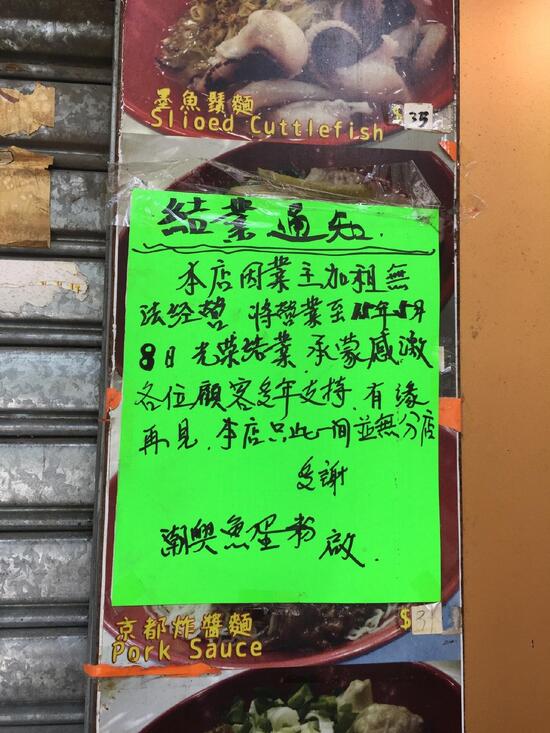 墨魚鬚麵
Slioed Cuttlefish
$35
結業通知.
本店因業主加租無
法經營 將營業至15年5月
8日光榮結業.承蒙感激
各位顧客多年支持.有緣
再見.本店只此一間並無分店
多謝
潮興魚蛋粉 啟.
京都炸醬麵
Pork Sauce
$3